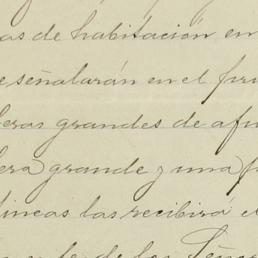 as de habitación en
e señalarán en el
eras grandes de afu
era grande y una p
lineas las recibirá e
de los Seño